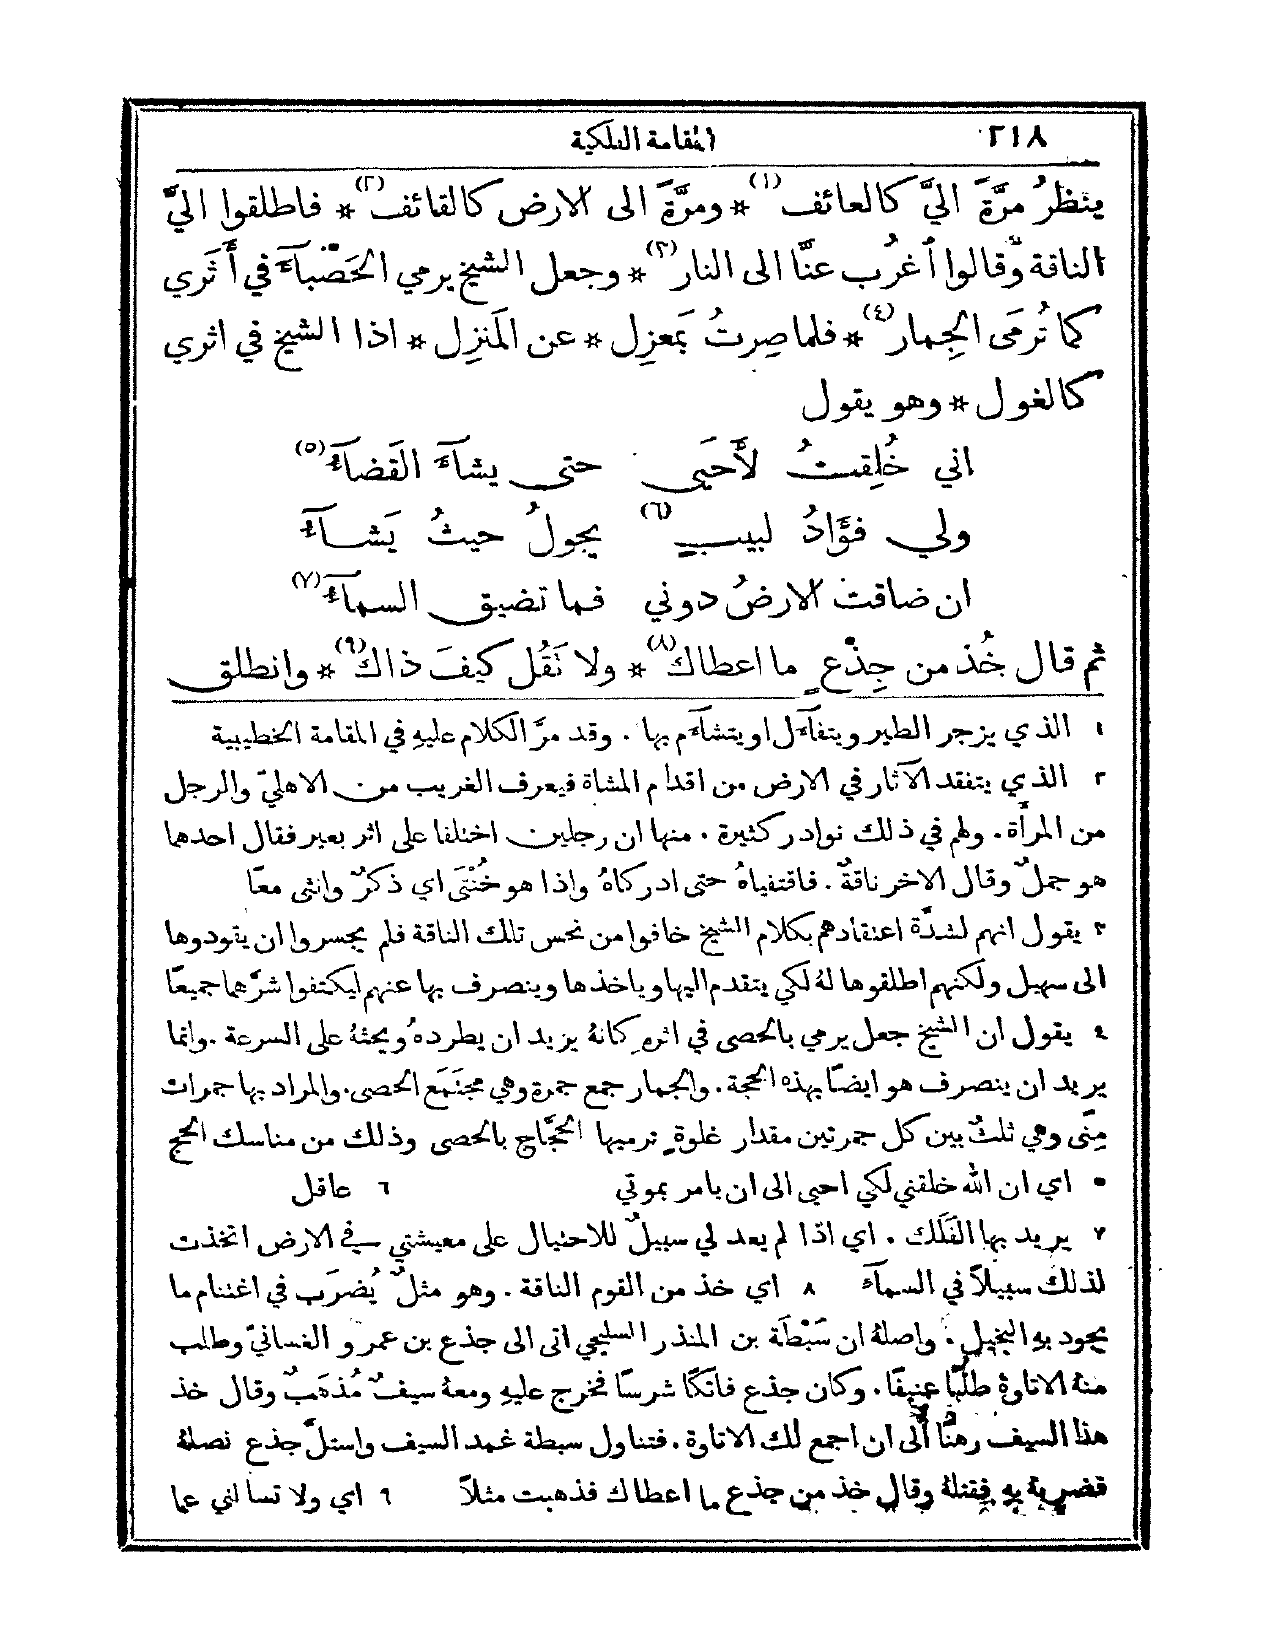 ٢١٨ المقامة الفلكية
ينظرُ مرَّةً اليَّ كالعائف(١) * ومرَّةً الى الارض كالقائف(٢) * فاطلقوا اليَّ
الناقة وَّقالوا اُغرُب عنَّا الى النار(٣) * وجعل الشيخ يرمي الحَصْبآءَ في أَثَري
كما تُرمَى الجِمار(٤) * فلما صِرتُ بمَعزِل * عن المَنزِل * اذا الشيخ في اثري
كالغول * وهو يقول
اني خُلِقتُ لأَحيَى حتى يشآءَ القَضآءُ(٥)
ولي فؤَادُ لبيبٍ(٦) يجولُ حيثُ يَشآءُ
ان ضاقت الارضُ دوني فما تضيق السمآءُ(٧)
ثم قال خُذ من جِذْعٍ ما اعطاك(٨) * ولا تَقُل كيفَ ذاك(٩) * وانطلق
١ الذي يزجر الطير ويتفآءَل او يتشآءَم بها . وقد مرَّ الكلام عليهِ في المقامة الخطيبية
٢ الذي يتفقد الآثار في الارض من اقدام المشاة فيعرف الغريب من الاهليّ والرجل
من المرأَة . ولهم في ذلك نوادر كثيرة . منها ان رجلين اختلفا على اثر بعير فقال احدها
هو جملٌ وقال الاخر ناقةٌ . فاقتفياهُ حتى ادركاهُ واذا هو خُنْثَى اي ذكرٌ وانثى معًا
٣ يقول انهم لشدَّة اعتقادهم بكلام الشيخ خافوا من نحس تلك الناقة فلم يجسروا ان يقودوها
الى سهيل ولكنهم اطلقوها لهُ لكي يتقدم اليها وياخذها وينصرف بها عنهم ليكتفوا شرَّها جميعًا
٤ يقول ان الشيخ جعل يرمي بالحصى في اثرهِ كانهُ يريد ان يطردهُ ويحثهُ على السرعة . وانما
يريد ان ينصرف هو ايضًا بهذه الحجة . والجمار جمع جمرة وهي مجتَمَع الحصى . والمراد بها جمرات
مِنًى وهي ثلثٌ بين كل جمرتين مقدار غلوةٍ ترميها الحجَّاج بالحصى وذلك من مناسك الحج
٥ اي ان الله خلقني لكي احيى الى ان يامر بموتي ٦ عاقل
٧ يريد بها الفَلَك . اي اذا لم يعد لي سبيلٌ للاحتيال على معيشتي في الارض اتخذت
لذلك سبيلاً في السمآءَ ٨ اي خذ من القوم الناقة . وهو مثلٌ يُضرَب في اغتنام ما
يجود بهِ البخيل . واصلهُ ان سَبْطَة بن المنذر السليحي اتى الى جذع بن عمرو الغسانيّ وطلب
منهُ الاتاوة طلبًا عنيفًا . وكان جذع فاتكًا شرسًا فخرج عليهِ ومعهُ سيفٌ مُذهَبٌ وقال خذ
هذا السيف رهنًا الى ان اجمع لك الاتاوة . فتناول سبطة غمد السيف واستلَّ جذع نصلهُ
فضربهُ بهِ فقتلهُ وقال خذ من جذع ما اعطاك فذهبت مثلاً ٩ اي ولا تسالني عما